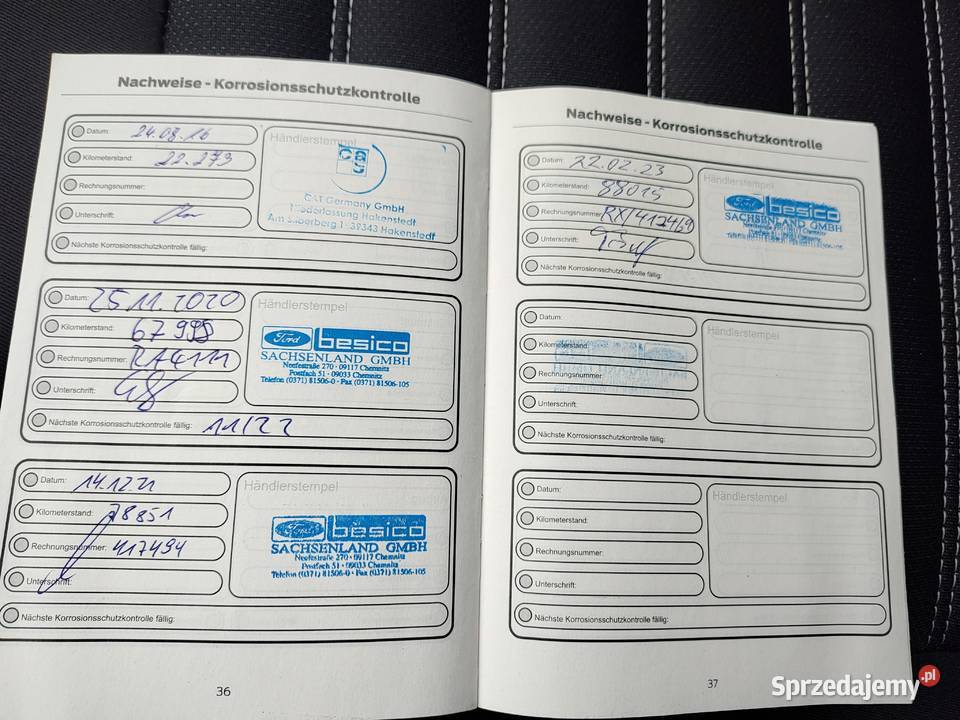 Nachweise - Korrosionsschutzkontrolle
Datum: 24.08.16
Kilometerstand: 22.273
Rechnungsnummer:
Unterschrift:
Nächste Korrosionsschutzkontrolle fällig:
Händlerstempel
C&T Germany GmbH
Niederlassung Hakenstedt
Am Silberberg 1 · 39343 Hakenstedt
Datum: 25.11.2020
Kilometerstand: 67995
Rechnungsnummer:
Unterschrift:
Nächste Korrosionsschutzkontrolle fällig: 11/22
Händlerstempel
Ford besico
SACHSENLAND GMBH
Neefestraße 270 · 09117 Chemnitz
Postfach 51 · 09033 Chemnitz
Telefon (0371) 81506-0 · Fax (0371) 81506-105
Datum: 14.12.21
Kilometerstand: 78851
Rechnungsnummer: 417494
Unterschrift:
Nächste Korrosionsschutzkontrolle fällig:
Händlerstempel
Ford besico
SACHSENLAND GMBH
Neefestraße 270 · 09117 Chemnitz
Postfach 51 · 09033 Chemnitz
Telefon (0371) 81506-0 · Fax (0371) 81506-105
36
Nachweise - Korrosionsschutzkontrolle
Datum: 22.02.23
Kilometerstand: 88015
Rechnungsnummer:
Unterschrift:
Nächste Korrosionsschutzkontrolle fällig:
Händlerstempel
Ford besico
SACHSENLAND GMBH
Neefestraße 270 · 09117 Chemnitz
Postfach 51 · 09033 Chemnitz
Datum:
Kilometerstand:
Rechnungsnummer:
Unterschrift:
Nächste Korrosionsschutzkontrolle fällig:
Händlerstempel
Datum:
Kilometerstand:
Rechnungsnummer:
Unterschrift:
Nächste Korrosionsschutzkontrolle fällig:
Händlerstempel
37
Sprzedajemy.pl